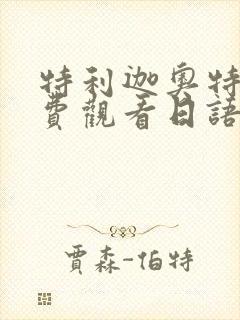 特利迦奧特
費觀看日語
賈森-伯特